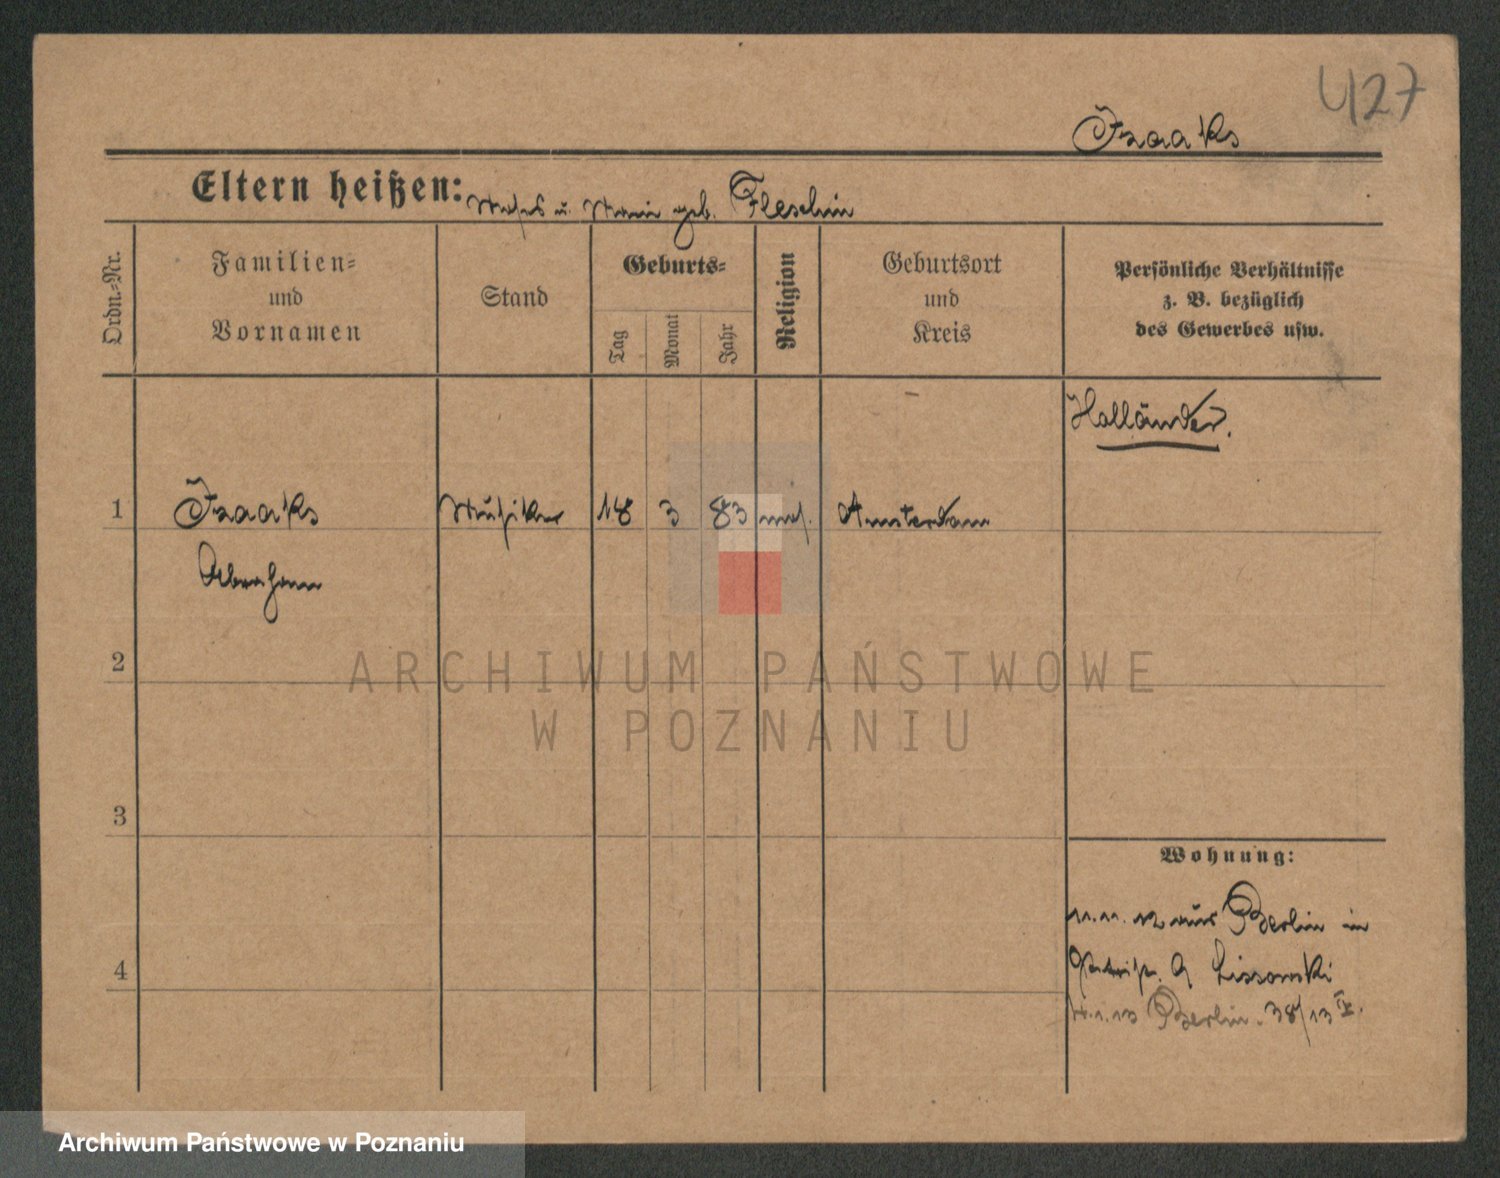 427
Isaaks
Eltern heißen: Moses u. Marie geb. Fleschin
Ordn.-Nr.
Familien-
und
Vornamen
Stand
Geburts-
Tag
Monat
Jahr
Religion
Geburtsort
und
Kreis
Persönliche Verhältnisse
z. B. bezüglich
des Gewerbes usw.
Holländer.
1 Isaaks Musiker 18 3 83 mos. Amsterdam
Abraham
2
ARCHIWUM PAŃSTWOWE
W POZNANIU
3
4
Wohnung:
11.11.12 aus Berlin in
9 Lissowski
1.13 Berlin. 38/13
Archiwum Państwowe w Poznaniu